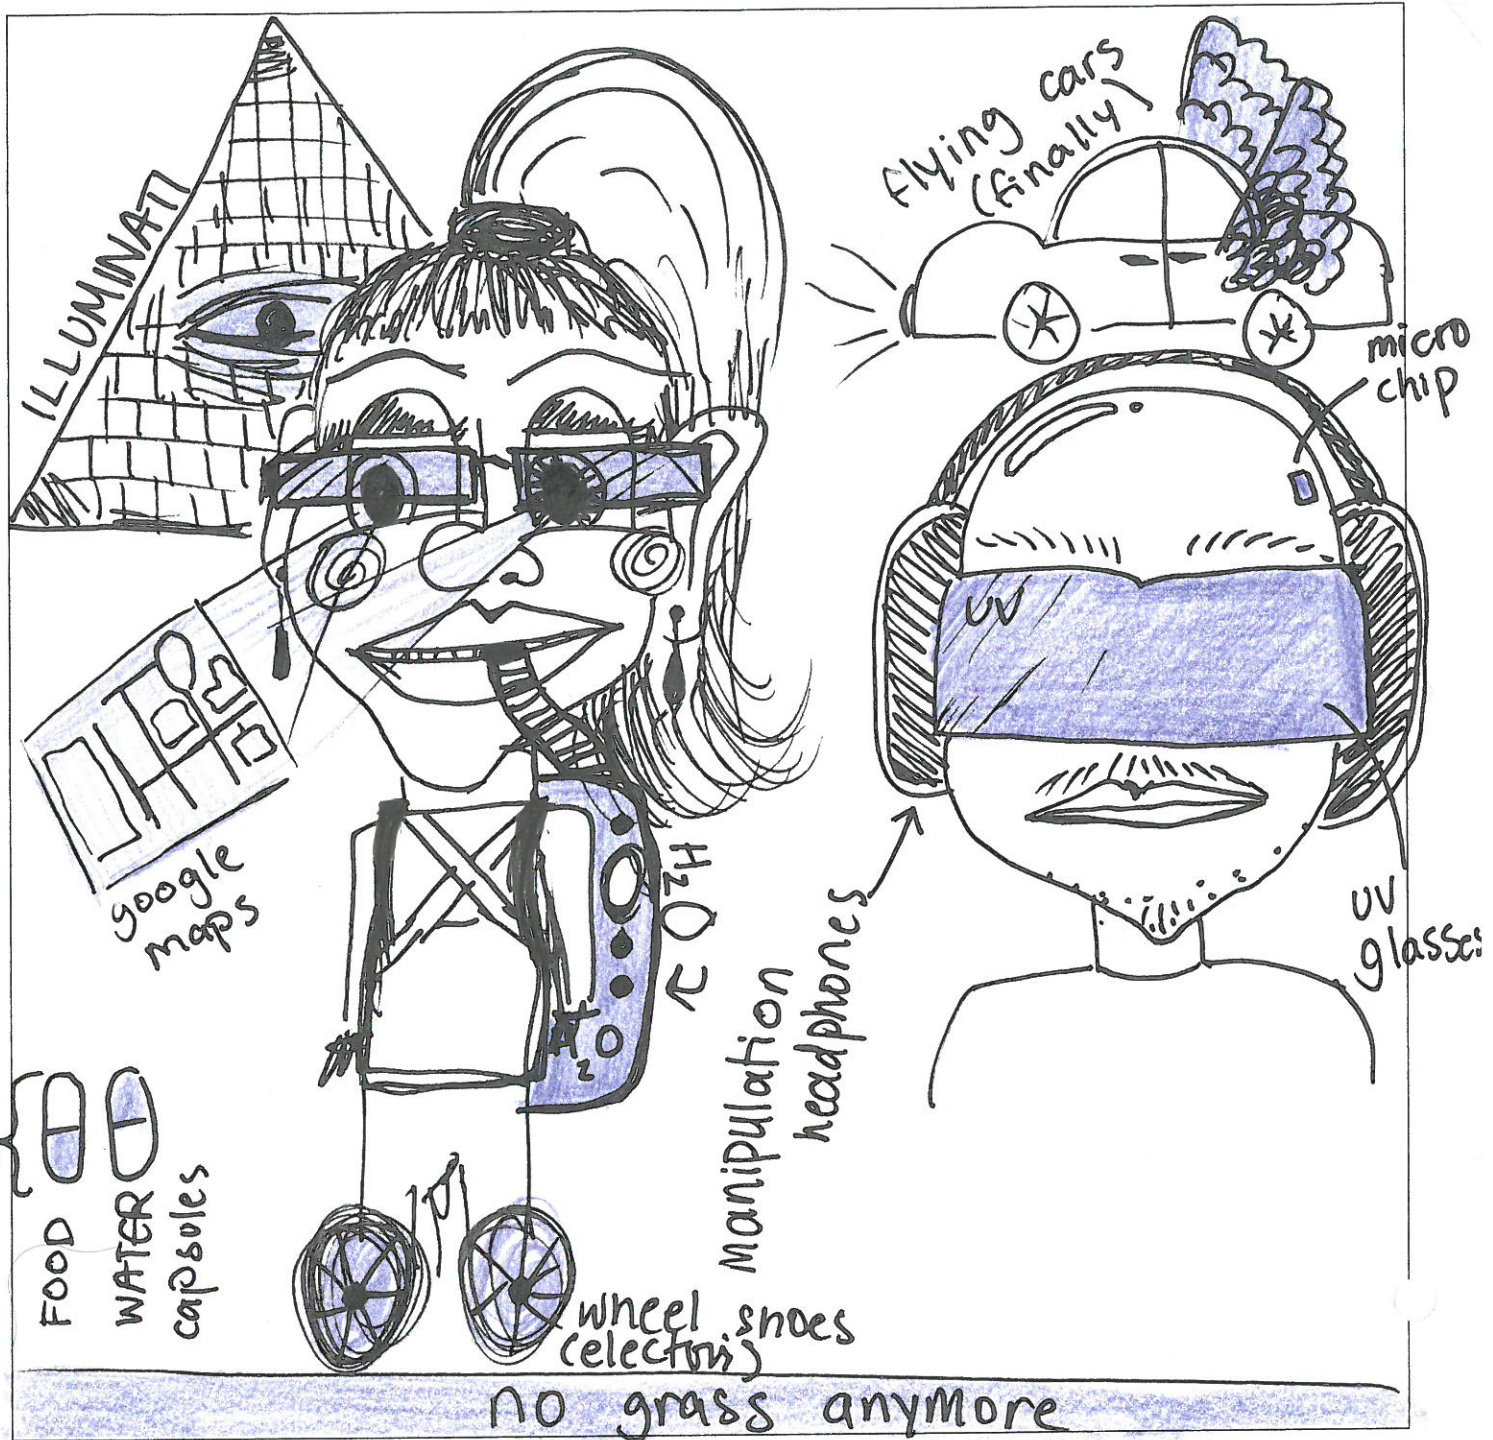 ILLUMINATI
flying cars
(finally)
micro
chip
UV
google
maps
H2O
H2O
UV
glasses
Manipulation
headphones
FOOD
WATER
capsules
wheel shoes
no grass anymore